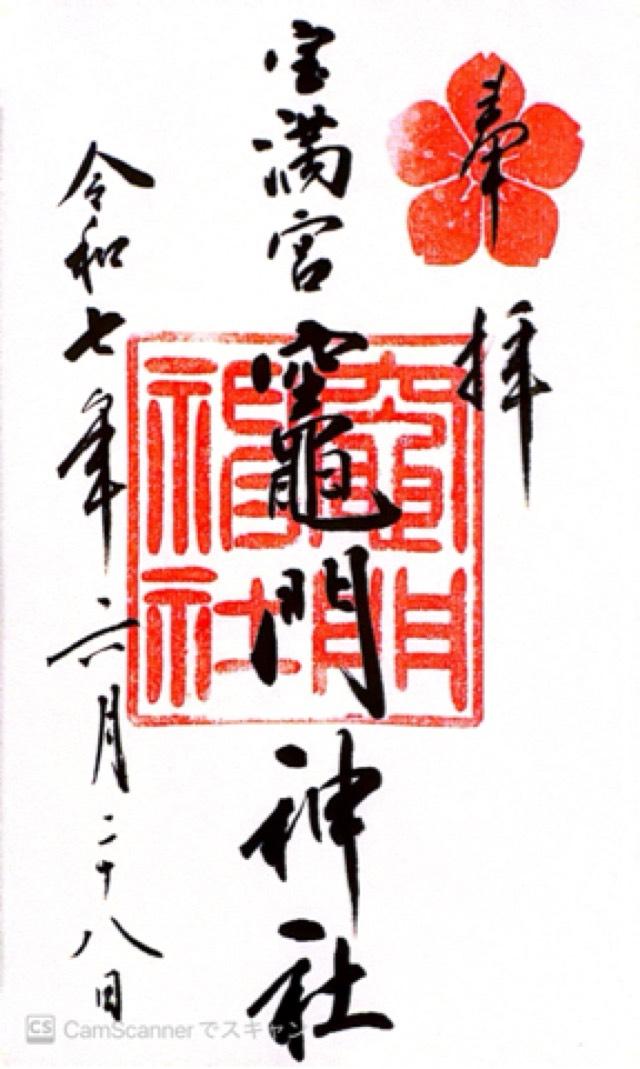 奉拝
宝満宮竈門神社
竈門神社
令和七年六月二十八日
CS CamScannerでスキャン